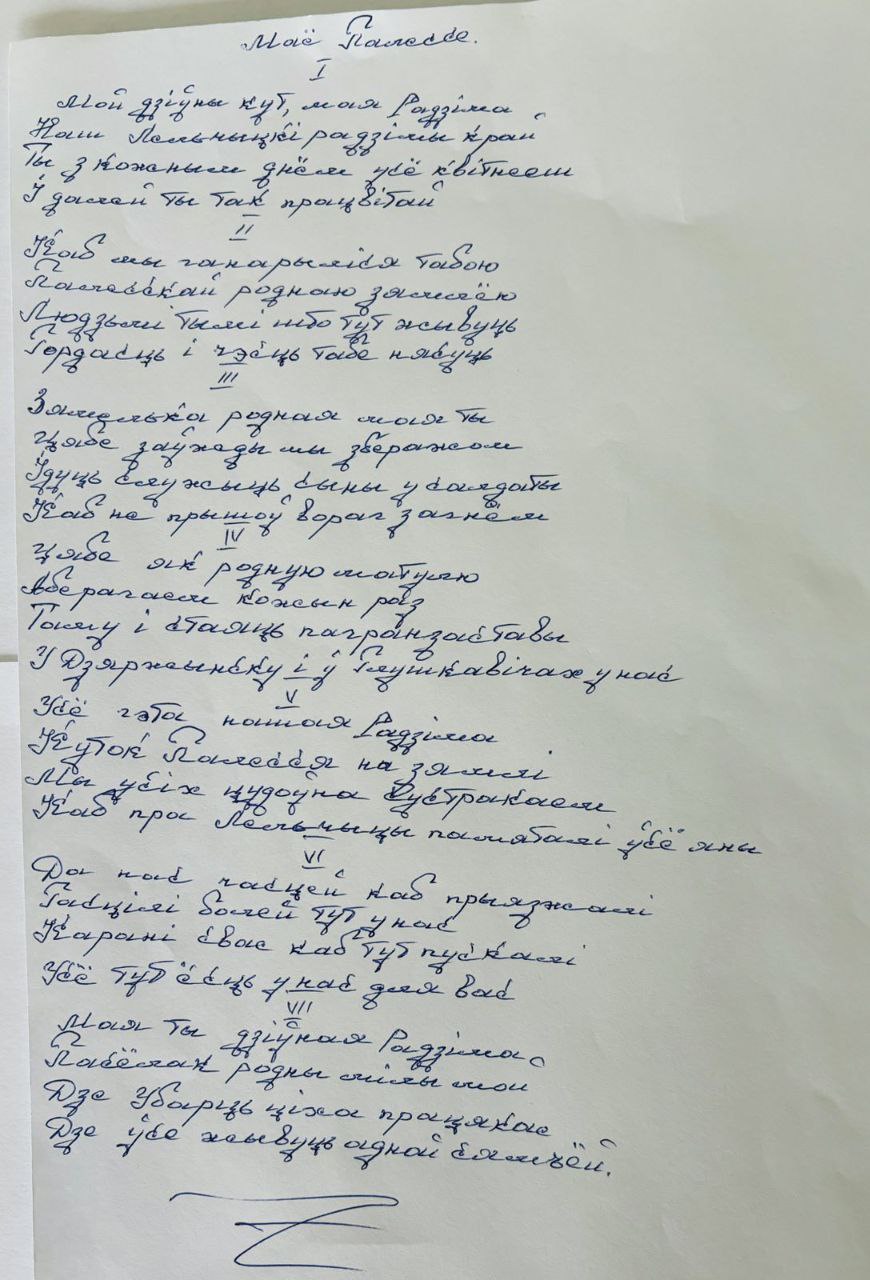 Маё Палессе.
I
Мой дзіўны кут, мая Радзіма
Наш Лельчыцкі радзімы край
Ты з кожным днём усё квітнееш
І далей ты так працвітай
II
Каб мы ганарыліся табою
Палесскай роднаю зямлёю
Людзьмі тымі што тут жывуць
Гордасць і чэсць табе нясуць
III
Зямелька родная мая ты
Цябе заўжеды мы зберажом
Ідуць служыць сыны у салдаты
Каб не прышоў вораг загнём
IV
Цябе як родную матулю
Зберагаем кожын раз
Таму і стаяць пагранзаставы
У Дзяржынску і ў Глушкавічах у нас
V
Усё гэта нашая Радзіма
Куток Палесся на зямлі
Мы усіх цудоўна сустракаем
Каб пра Лельчыцы памяталі ўсё яны
VI
Да нас часцей каб прыязжалі
Гасцілі болей тут у нас
Карані свае каб тут пускалі
Усё тут ёсць у нас для вас
VII
Мая ты дзіўная Радзіма
Пасёлак родны мілы мой
Дзе Убарць ціха працякае
Дзе ўсе жывуць адной сямъёй.